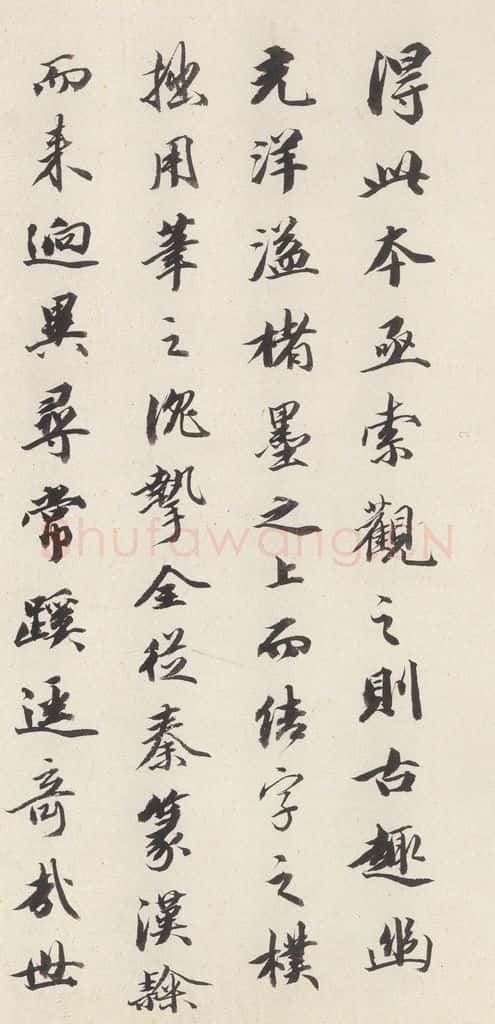 得此本亟索觀之則古趣幽
光洋溢楮墨之上而結字之樸
拙用筆之沈摯全從秦篆漢隸
而来迥異尋常蹊逕奇哉世
shufawang.CN